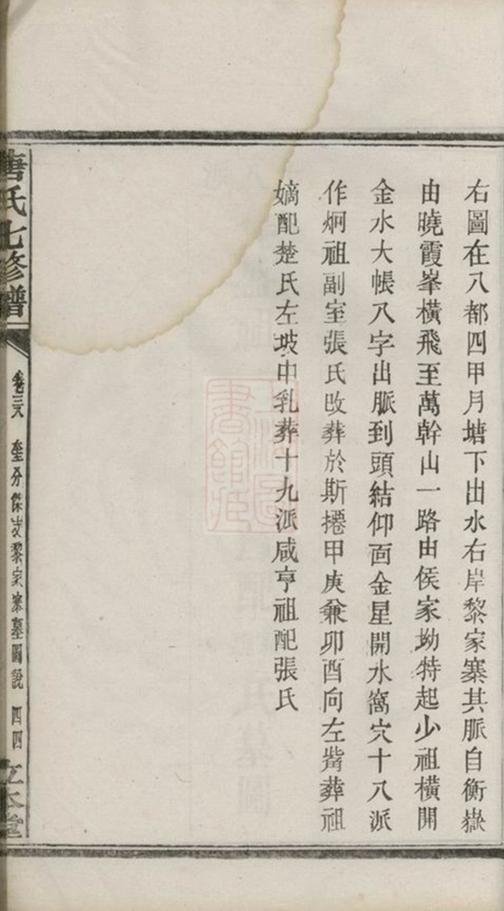 右圖在八都四甲月塘下出水右岸黎家寨其脈自衡嶽
由曉霞峯橫飛至萬幹山一路由侯家坳特起少祖橫開
金水大帳八字出脈到頭結仰面金星開水窩穴十八派
作炯祖副室張氏改葬於斯捲甲庚兼卯酉向左觜葬祖
嫡配楚氏左坡中乳葬十九派咸亨祖配張氏
唐氏七修譜
卷三八 奎分傑房黎家寨墓圖說 四四
立本堂